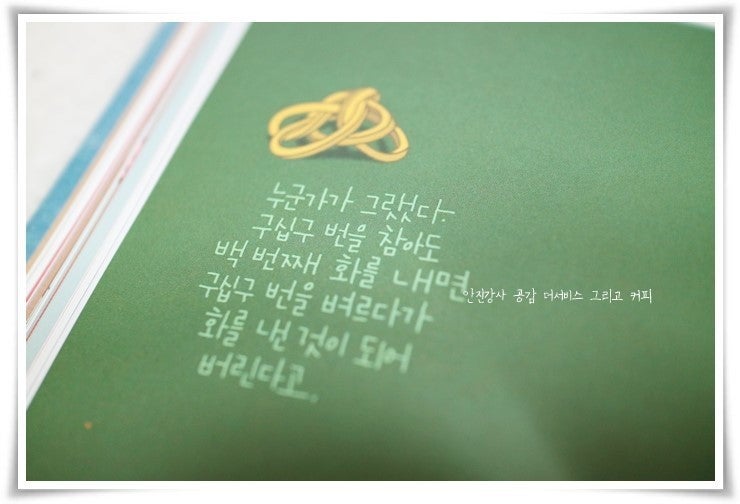 누군가가 그랬다.
구십구 번을 참아도
백 번째 화를 내면
구십구 번을 벼르다가
화를 낸 것이 되어
버린다고.
안진강사 공감 더서비스 그리고 커피